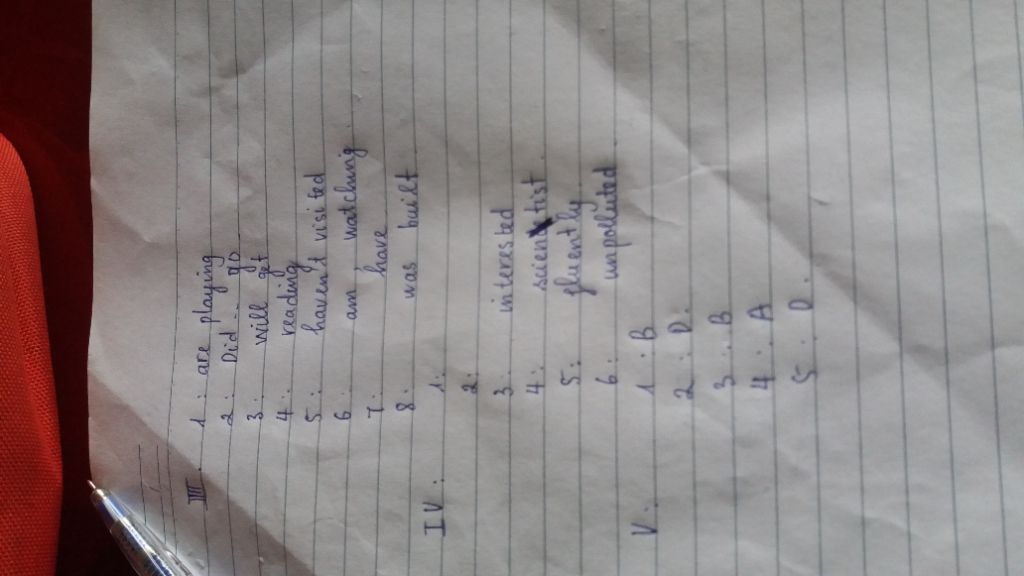 III.
1 : are playing
2 : Did ... go
3 : will get
4 : reading
5 : haven't visited
6 : am watching
7 : have
8 : was built
IV.
1 :
2 :
3 : interested
4 : scientist
5 : fluently
6 : unpolluted
V.
1 : B
2 : D.
3 : B
4 : A
5 : D.